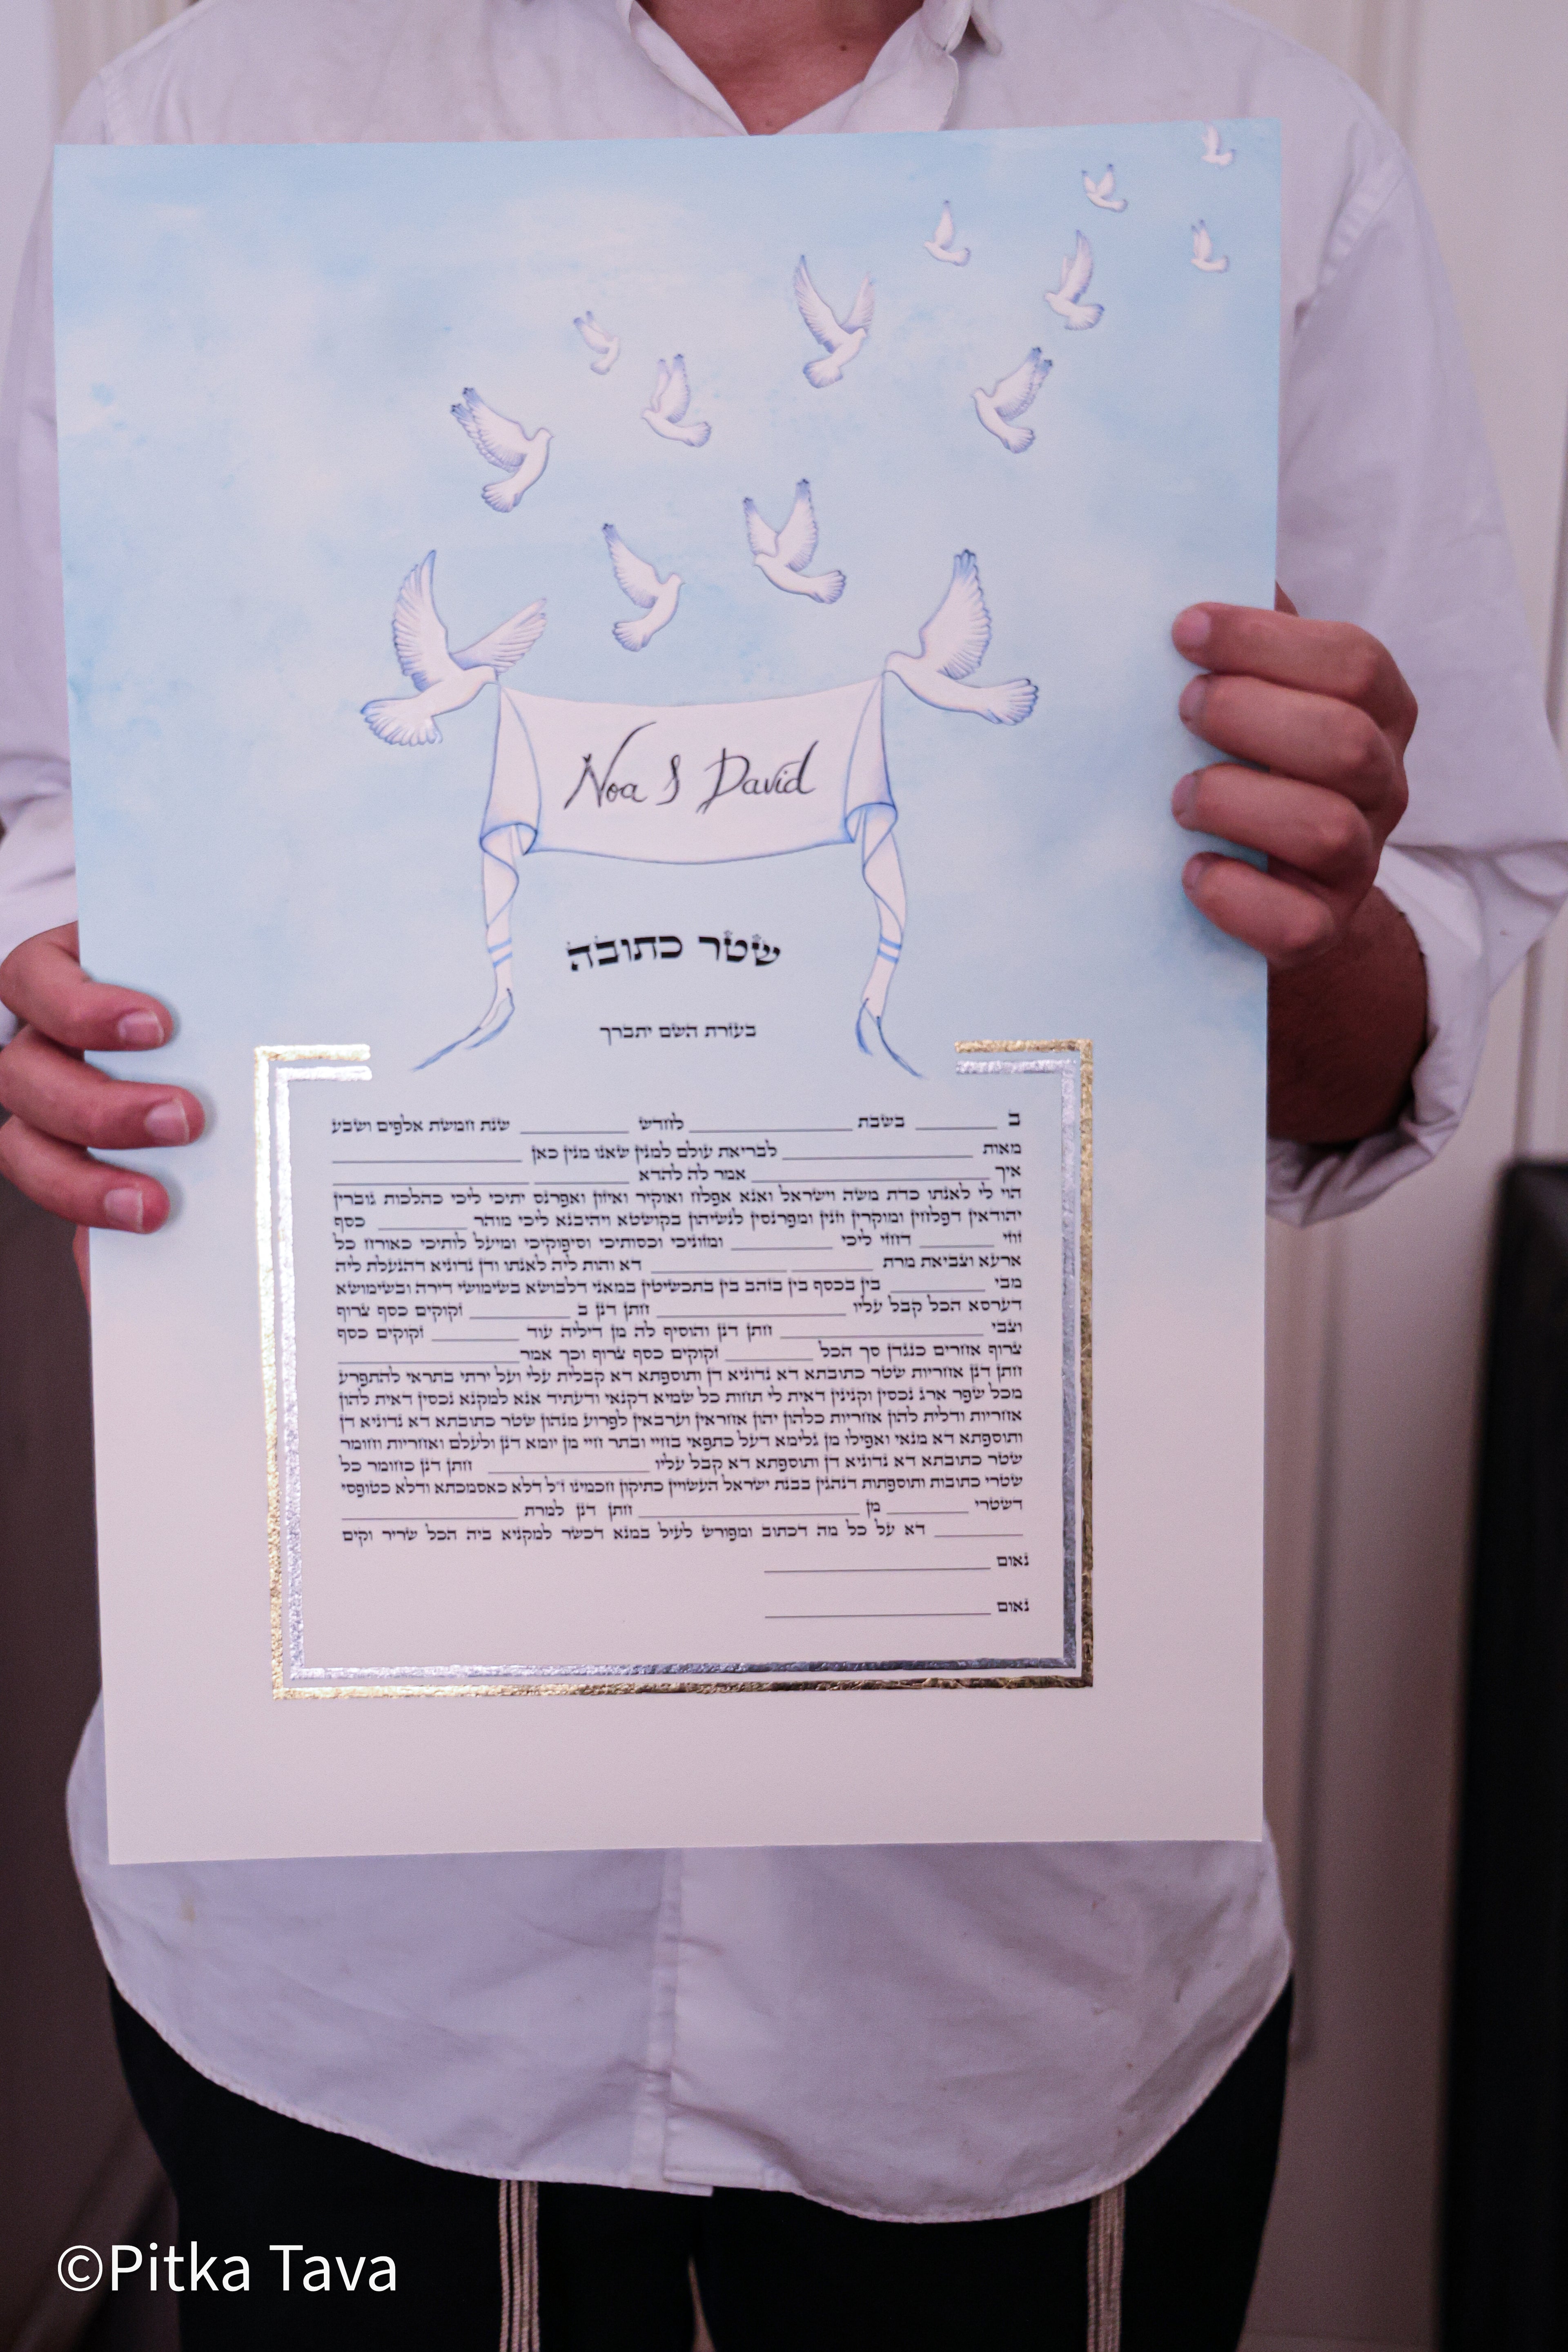 Noa & David
שטר כתובה
בעזרת השם יתברך
ב ________ בשבת ________ לחדש ________ שנת חמשת אלפים ושבע
מאות ________ לבריאת עולם למנין שאנו מנין כאן ________
איך ________ אמר לה להדא ________ ________
הוי לי לאנתו כדת משה וישראל ואנא אפלח ואוקיר ואיזון ואפרנס יתיכי ליכי כהלכות גוברין
יהודאין דפלחין ומוקרין וזנין ומפרנסין לנשיהון בקושטא ויהיבנא ליכי מוהר ________ כסף
זוזי ________ דחזי ליכי ________ ומזוניכי וכסותיכי וסיפוקיכי ומיעל לותיכי כאורח כל
ארעא וצביאת מרת ________ ________ דא והות ליה לאנתו ודן נדוניא דהנעלת ליה
מבי ________ בין בכסף בין בזהב בין בתכשיטין במאני דלבושא בשימושי דירה ובשימושא
דערסא הכל קבל עליו ________ חתן דנן ב ________ זקוקים כסף צרוף
וצבי ________ חתן דנן והוסיף לה מן דיליה עוד ________ זקוקים כסף
צרוף אחרים כנגדן סך הכל ________ זקוקים כסף צרוף וכך אמר ________
חתן דנן אחריות שטר כתובתא דא נדוניא דן ותוספתא דא קבלית עלי ועל ירתי בתראי להתפרע
מכל שפר ארג נכסין וקנינין דאית לי תחות כל שמיא דקנאי ודעתיד אנא למקנא נכסין דאית להון
אחריות ודלית להון אחריות כלהון יהון אחראין וערבאין לפרוע מנהון שטר כתובתא דא נדוניא דן
ותוספתא דא מנאי ואפילו מן גלימא דעל כתפאי בחיי ובתר חיי מן יומא דנן ולעלם ואחריות וחומר
שטר כתובתא דא נדוניא דן ותוספתא דא קבל עליו ________ חתן דנן כחומר כל
שטרי כתובות ותוספתות דנהגין בבנת ישראל העשויין כתיקון חכמינו ז״ל דלא כאסמכתא ודלא כטופסי
דשטרי ________ מן ________ חתן דנן למרת ________
________ דא על כל מה דכתוב ומפורש לעיל במנא דכשר למקניא ביה הכל שריר וקים
נאום ________
נאום ________
©Pitka Tava